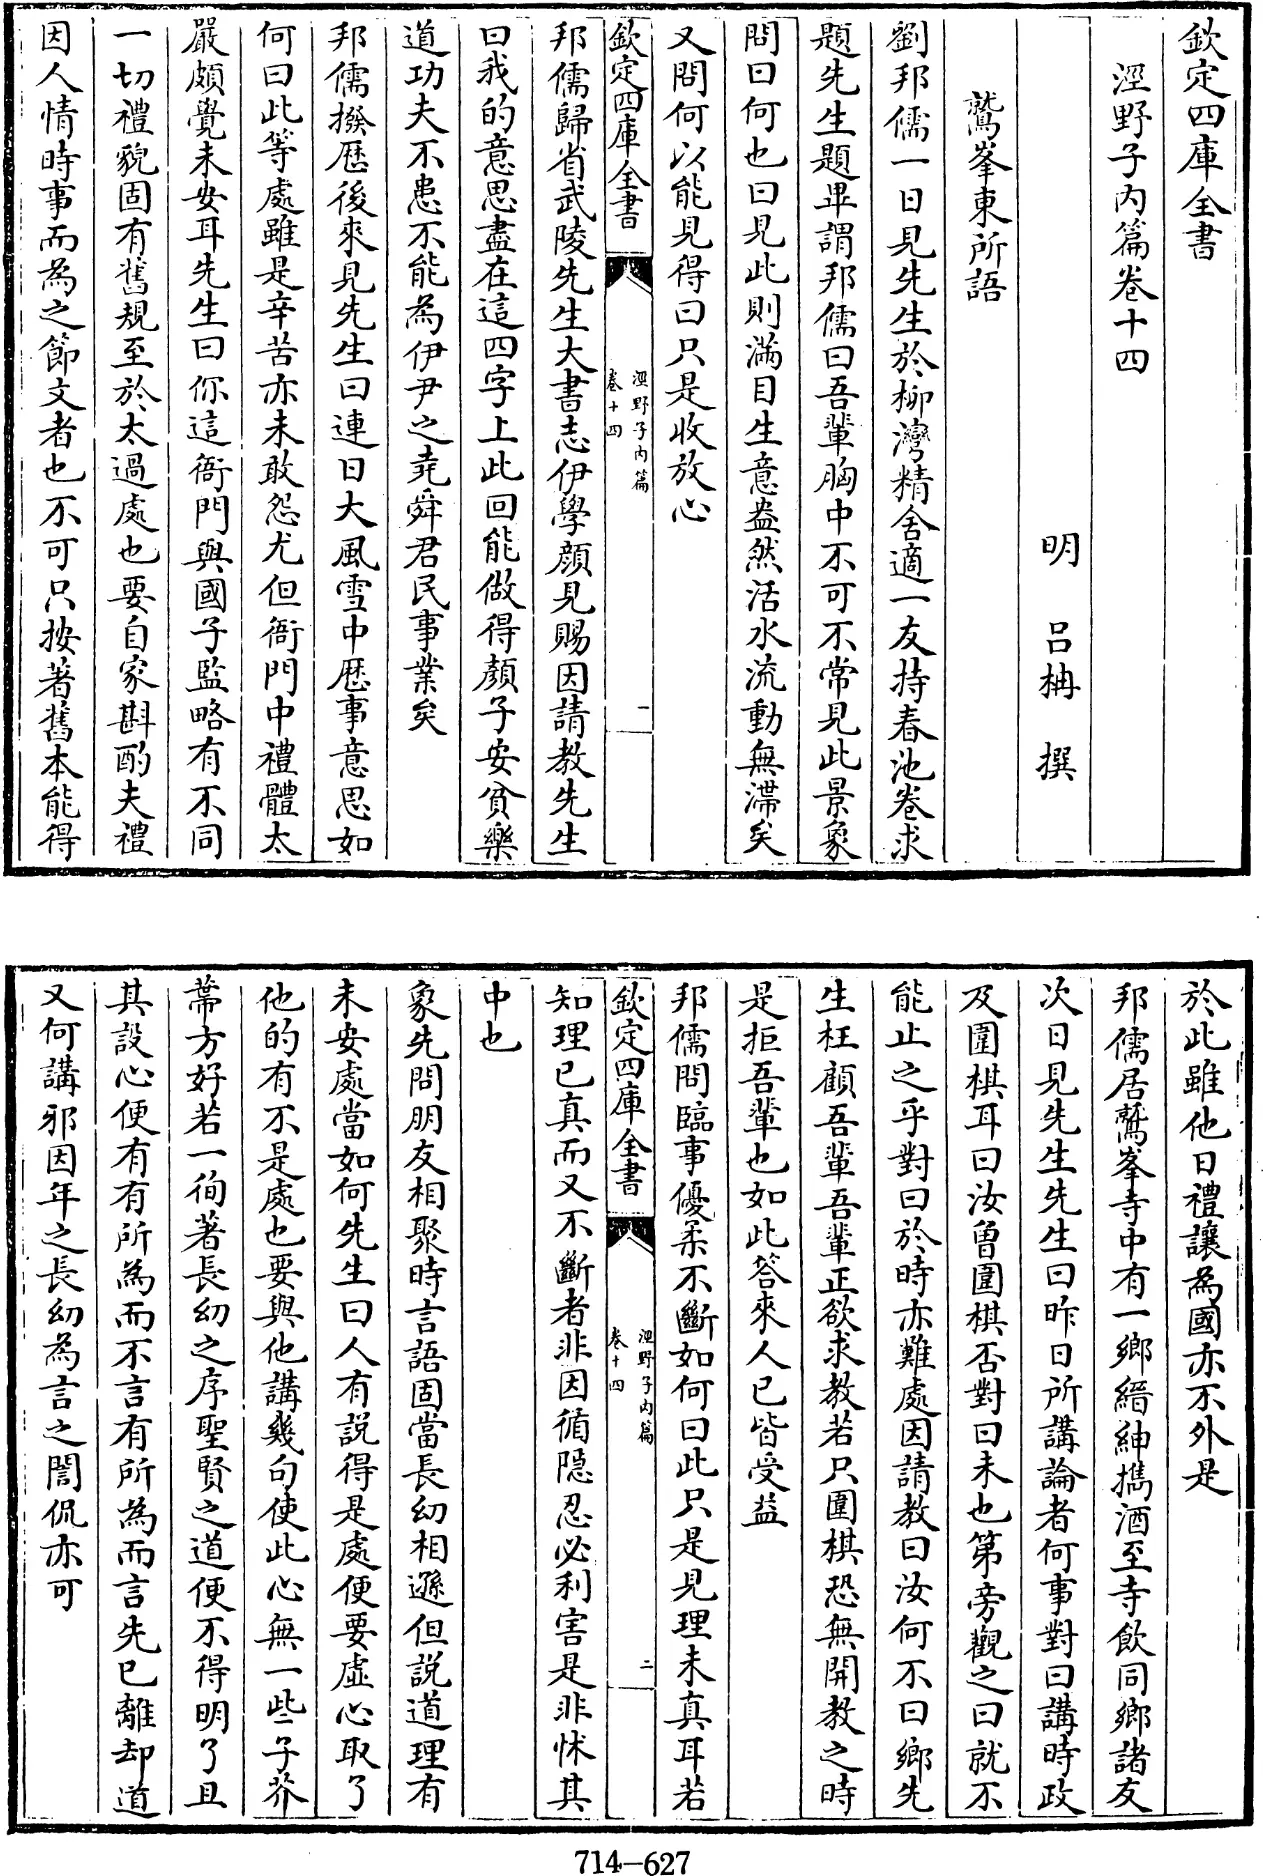 欽定四庫全書
涇野子內篇卷十四
明　呂柟　撰
鷲峯東所語
劉邦儒一日見先生於柳灣精舍適一友持春池卷求
題先生題畢謂邦儒曰吾輩胸中不可不常見此景象
問曰何也曰見此則滿目生意盎然活水流動無滯矣
又問何以能見得曰只是收放心
欽定四庫全書
涇野子內篇
卷十四
一
邦儒歸省武陵先生大書志伊學顔見賜因請教先生
曰我的意思盡在這四字上此回能做得顔子安貧樂
道功夫不患不能為伊尹之堯舜君民事業矣
邦儒撥歷後來見先生曰連日大風雪中歷事意思如
何曰此等處雖是辛苦亦未敢怨尤但衙門中禮體太
嚴頗覺未安耳先生曰你這衙門與國子監略有不同
一切禮貌固有舊規至於太過處也要自家斟酌夫禮
因人情時事而為之節文者也不可只按著舊本能得
於此雖他日禮讓為國亦不外是
邦儒居鷲峯寺中有一鄉縉紳擕酒至寺飲同鄉諸友
次日見先生先生曰昨日所講論者何事對曰講時政
及圍棋耳曰汝曾圍棋否對曰未也第旁觀之曰就不
能止之乎對曰於時亦難處因請教曰汝何不曰鄉先
生枉顧吾輩吾輩正欲求教若只圍棋恐無開教之時
是拒吾輩也如此答來人已皆受益
邦儒問臨事優柔不斷如何曰此只是見理未真耳若
欽定四庫全書
涇野子內篇
卷十四
二
知理已真而又不斷者非因循隱忍必利害是非怵其
中也
象先問朋友相聚時言語固當長幼相遜但説道理有
未安處當如何先生曰人有説得是處便要虛心取了
他的有不是處也要與他講幾句使此心無一些子芥
蔕方好若一徇著長幼之序聖賢之道便不得明了且
其設心便有有所為而不言有所為而言先已離却道
又何講邪因年之長幼為言之誾侃亦可
714-627